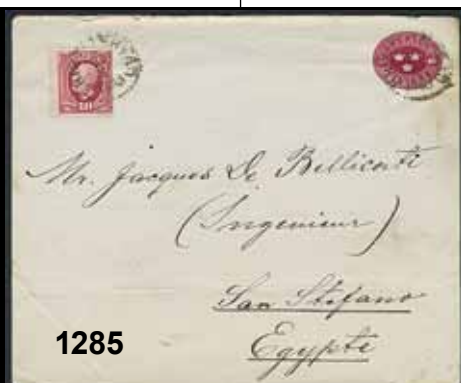 10
Mr. Jacques De Bellicarti
(Ingenieur)
San Stefano
Egypte
1285